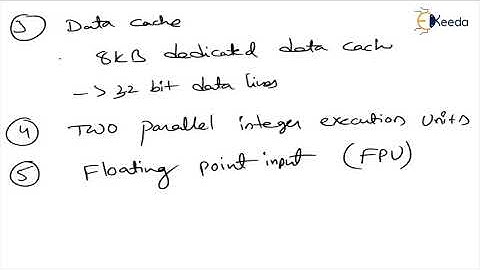 Ekeeda
3 Data cache
. 8KB dedicated data cach
-> 32 bit data lines
4 Two parallel integer execution units
5 Floating point input (FPU)